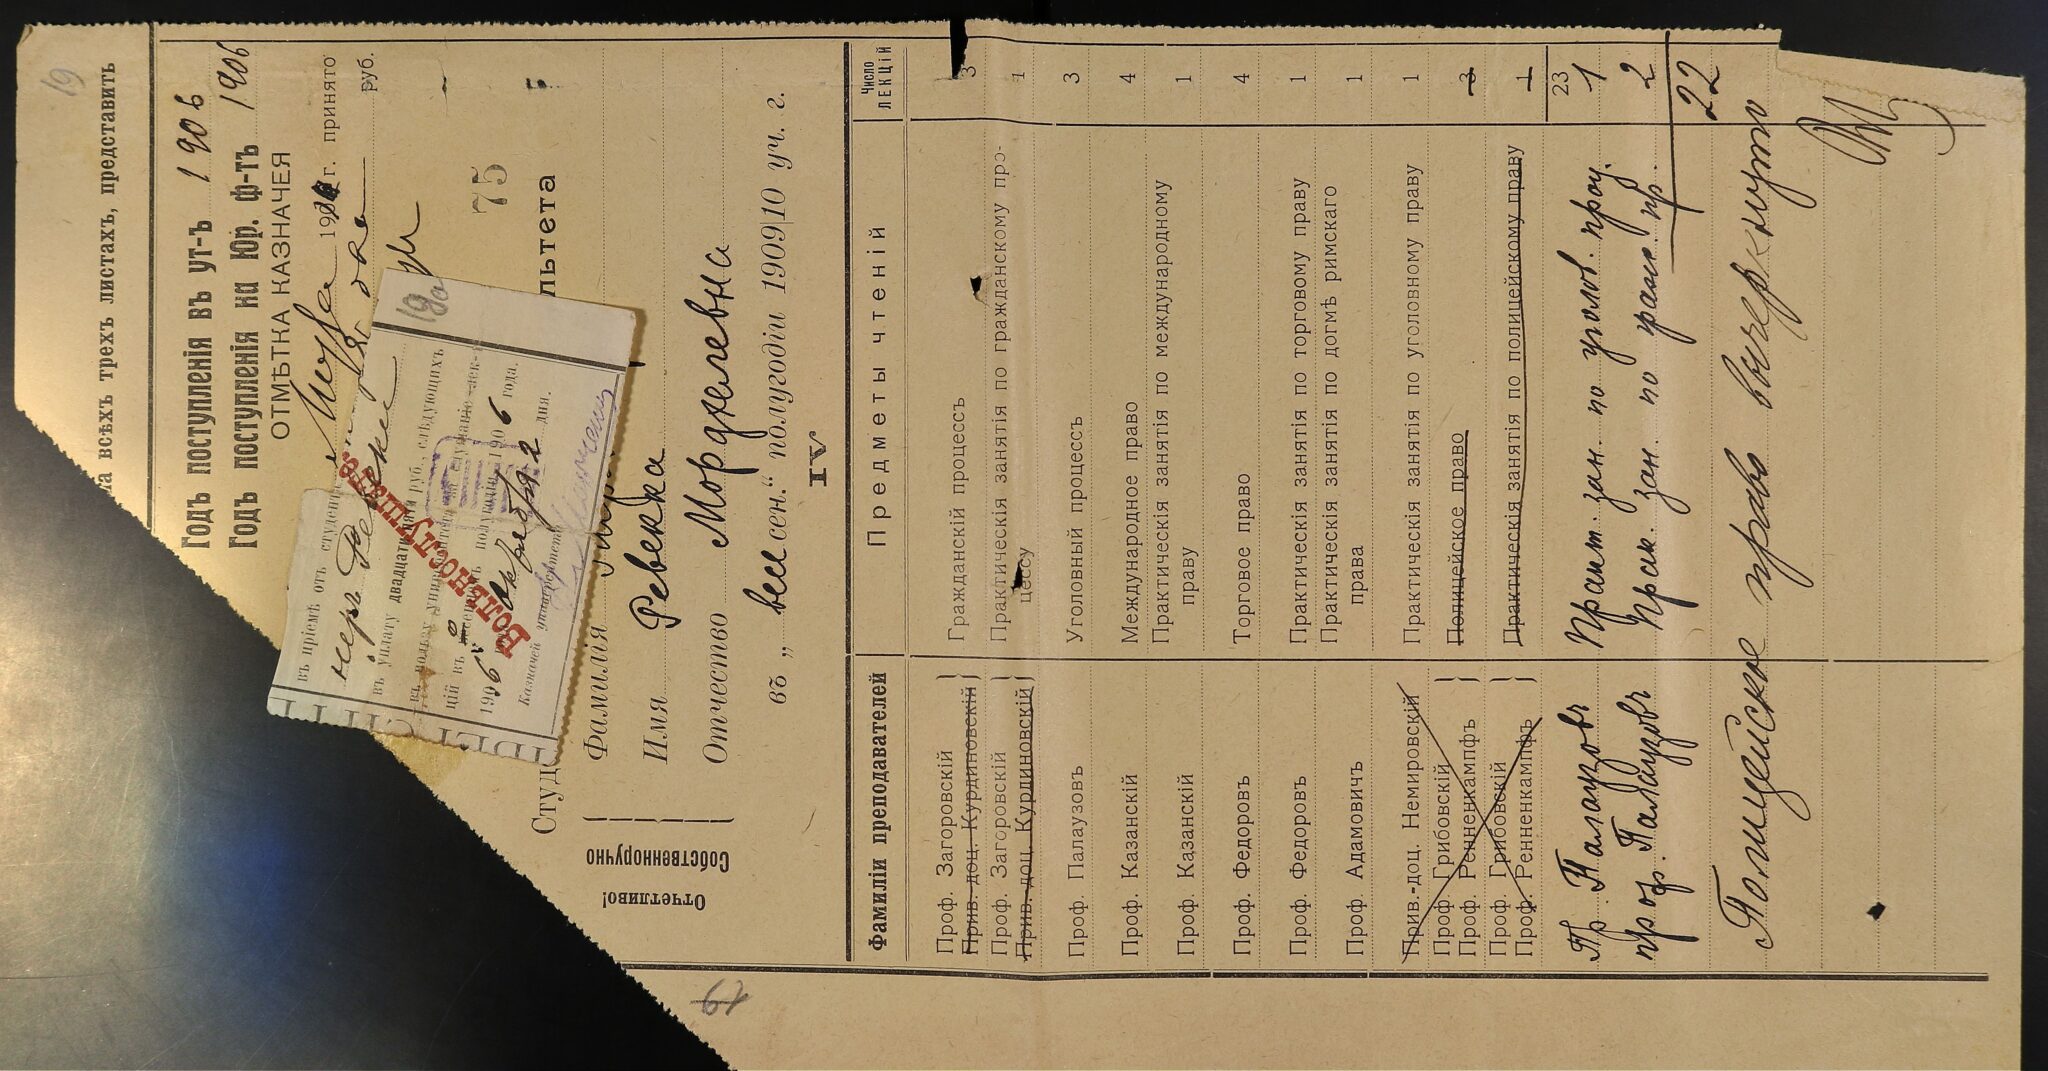 19
на всѣхъ трехъ листахъ, представить
Годъ поступленія въ ут-ъ 1906
Годъ поступленія на Юр. ф-тъ 1906
ОТМѢТКА КАЗНАЧЕЯ
г. принято
руб.
75
льтета
въ пріемѣ отъ студен
Ревеки
въ уплату двадцати пяти руб., слѣдующихъ
въ пользу университета за слушаніе лек-
цій въ осеннемъ полугодіи 1906
1906 года.
октября 2 дня.
Казначей университета
Вольнослушател
190
Студе
Фамилія
Имя Ревекка
Отчество Морджелевна
въ „весен.“ полугодіи 1909|10 уч. г.
IV
Собственноручно
Отчетливо!
Фамиліи преподавателей Предметы чтеній Число ЛЕКЦІЙ
Проф. Загоровскій Гражданскій процессъ 3
Прив. доц. Курдиновскій
Проф. Загоровскій Практическія занятія по гражданскому про- 1
Прив. доц. Курдиновскій цессу
Проф. Палаузовъ Уголовный процессъ 3
Проф. Казанскій Международное право 4
Проф. Казанскій Практическія занятія по международному 1
праву
Проф. Федоровъ Торговое право 4
Проф. Федоровъ Практическія занятія по торговому праву 1
Проф. Адамовичъ Практическія занятія по догмѣ римскаго 1
права
Прив.-доц. Немировскій Практическія занятія по уголовному праву 1
Проф. Грибовскій Полицейское право 3
Проф. Ренненкампфъ
Проф. Грибовскій Практическія занятія по полицейскому праву 1
Проф. Ренненкампфъ
23
Пр. Палаузовъ Практ. зан. по уголов. проц. 1
проф. Палаузовъ Прак. зан. по гражд. пр. 2
22
Полицейское право вычеркнуто
67